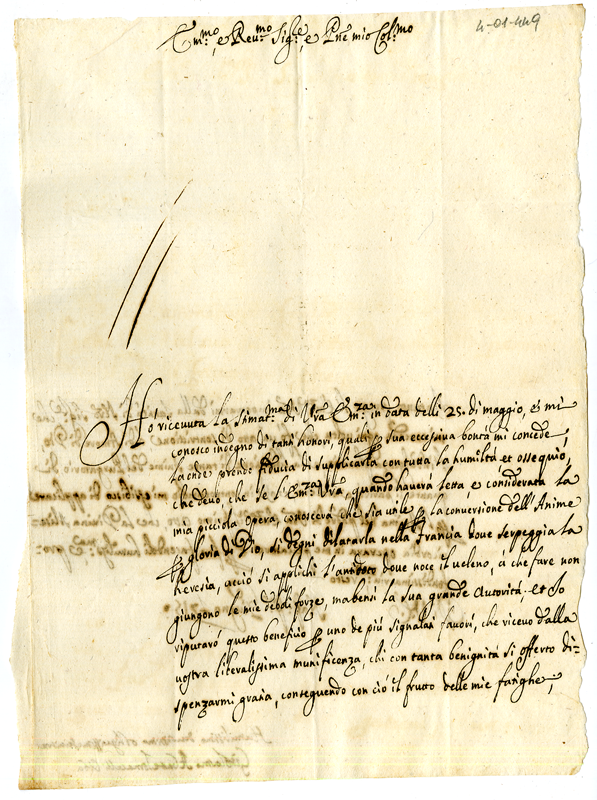 4-01-449
Em.mo, e Reu.mo Sig.re, e Prne mio Col.mo
Hó riceuuta la stimat.ma di Vra Em.za in data delli 25. di maggio, et mi
conosco indegno di tanti honori, quali p sua eccessiua bontà mi concede
laonde prendo fiducia di supplicarla con tutta la humiltà, et ossequio,
che deuo, che se l'Em.za Vra, quando hauerà letta, e considerata la
mia picciola opera, conoscerà che sia utile p la conuersione dell'Anime
p gloria di Dio, si degni dilatarla nella Francia doue serpeggia la
heresia, acciò si applichi l'antidoto doue noce il ueleno, à che fare non
giungono le mie deboli forze, ma bensi la sua grande Autorità. et Io
riputaró questo beneficio p uno de più signalati fauori, che riceuo dalla
uostra liberalissima munificenza, chi con tanta benignità si offerto di=
spenzarmi gratia, conseguendo con ció il frutto delle mie fatighe;